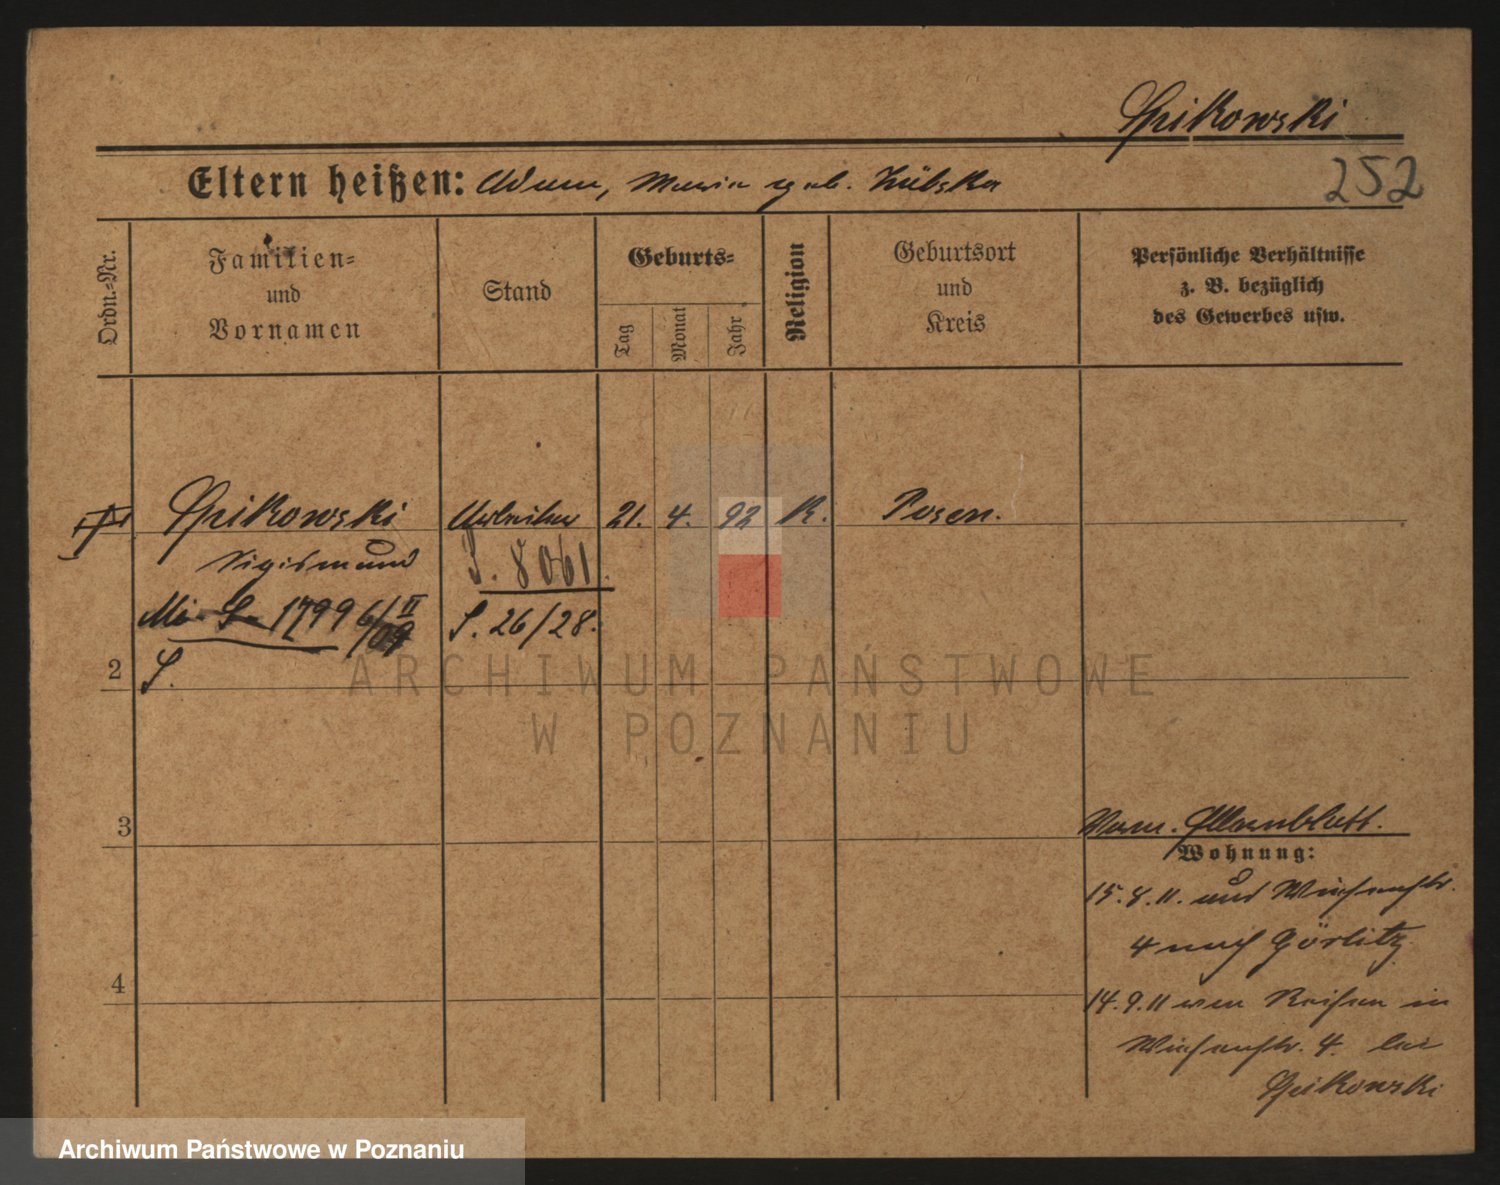 Spikowski
252
Eltern heißen: Adam, Maria geb. Lübska
Ordn.-Nr.
Familien-
und
Vornamen
Stand
Geburts-
Tag
Monat
Jahr
Religion
Geburtsort
und
Kreis
Persönliche Verhältnisse
z. B. bezüglich
des Gewerbes usw.
Spikowski Arbeiter 21. 4. 92 K. Posen.
Sigismund
S. 8061.
1799 6/II 09
S. 26/28.
S.
2
ARCHIWUM PAŃSTWOWE
W POZNANIU
3
Wohnung:
15.8.11. und
4 nach Görlitz
4
14.9.11 von Reisen in
4. bei
Spikowski
Archiwum Państwowe w Poznaniu